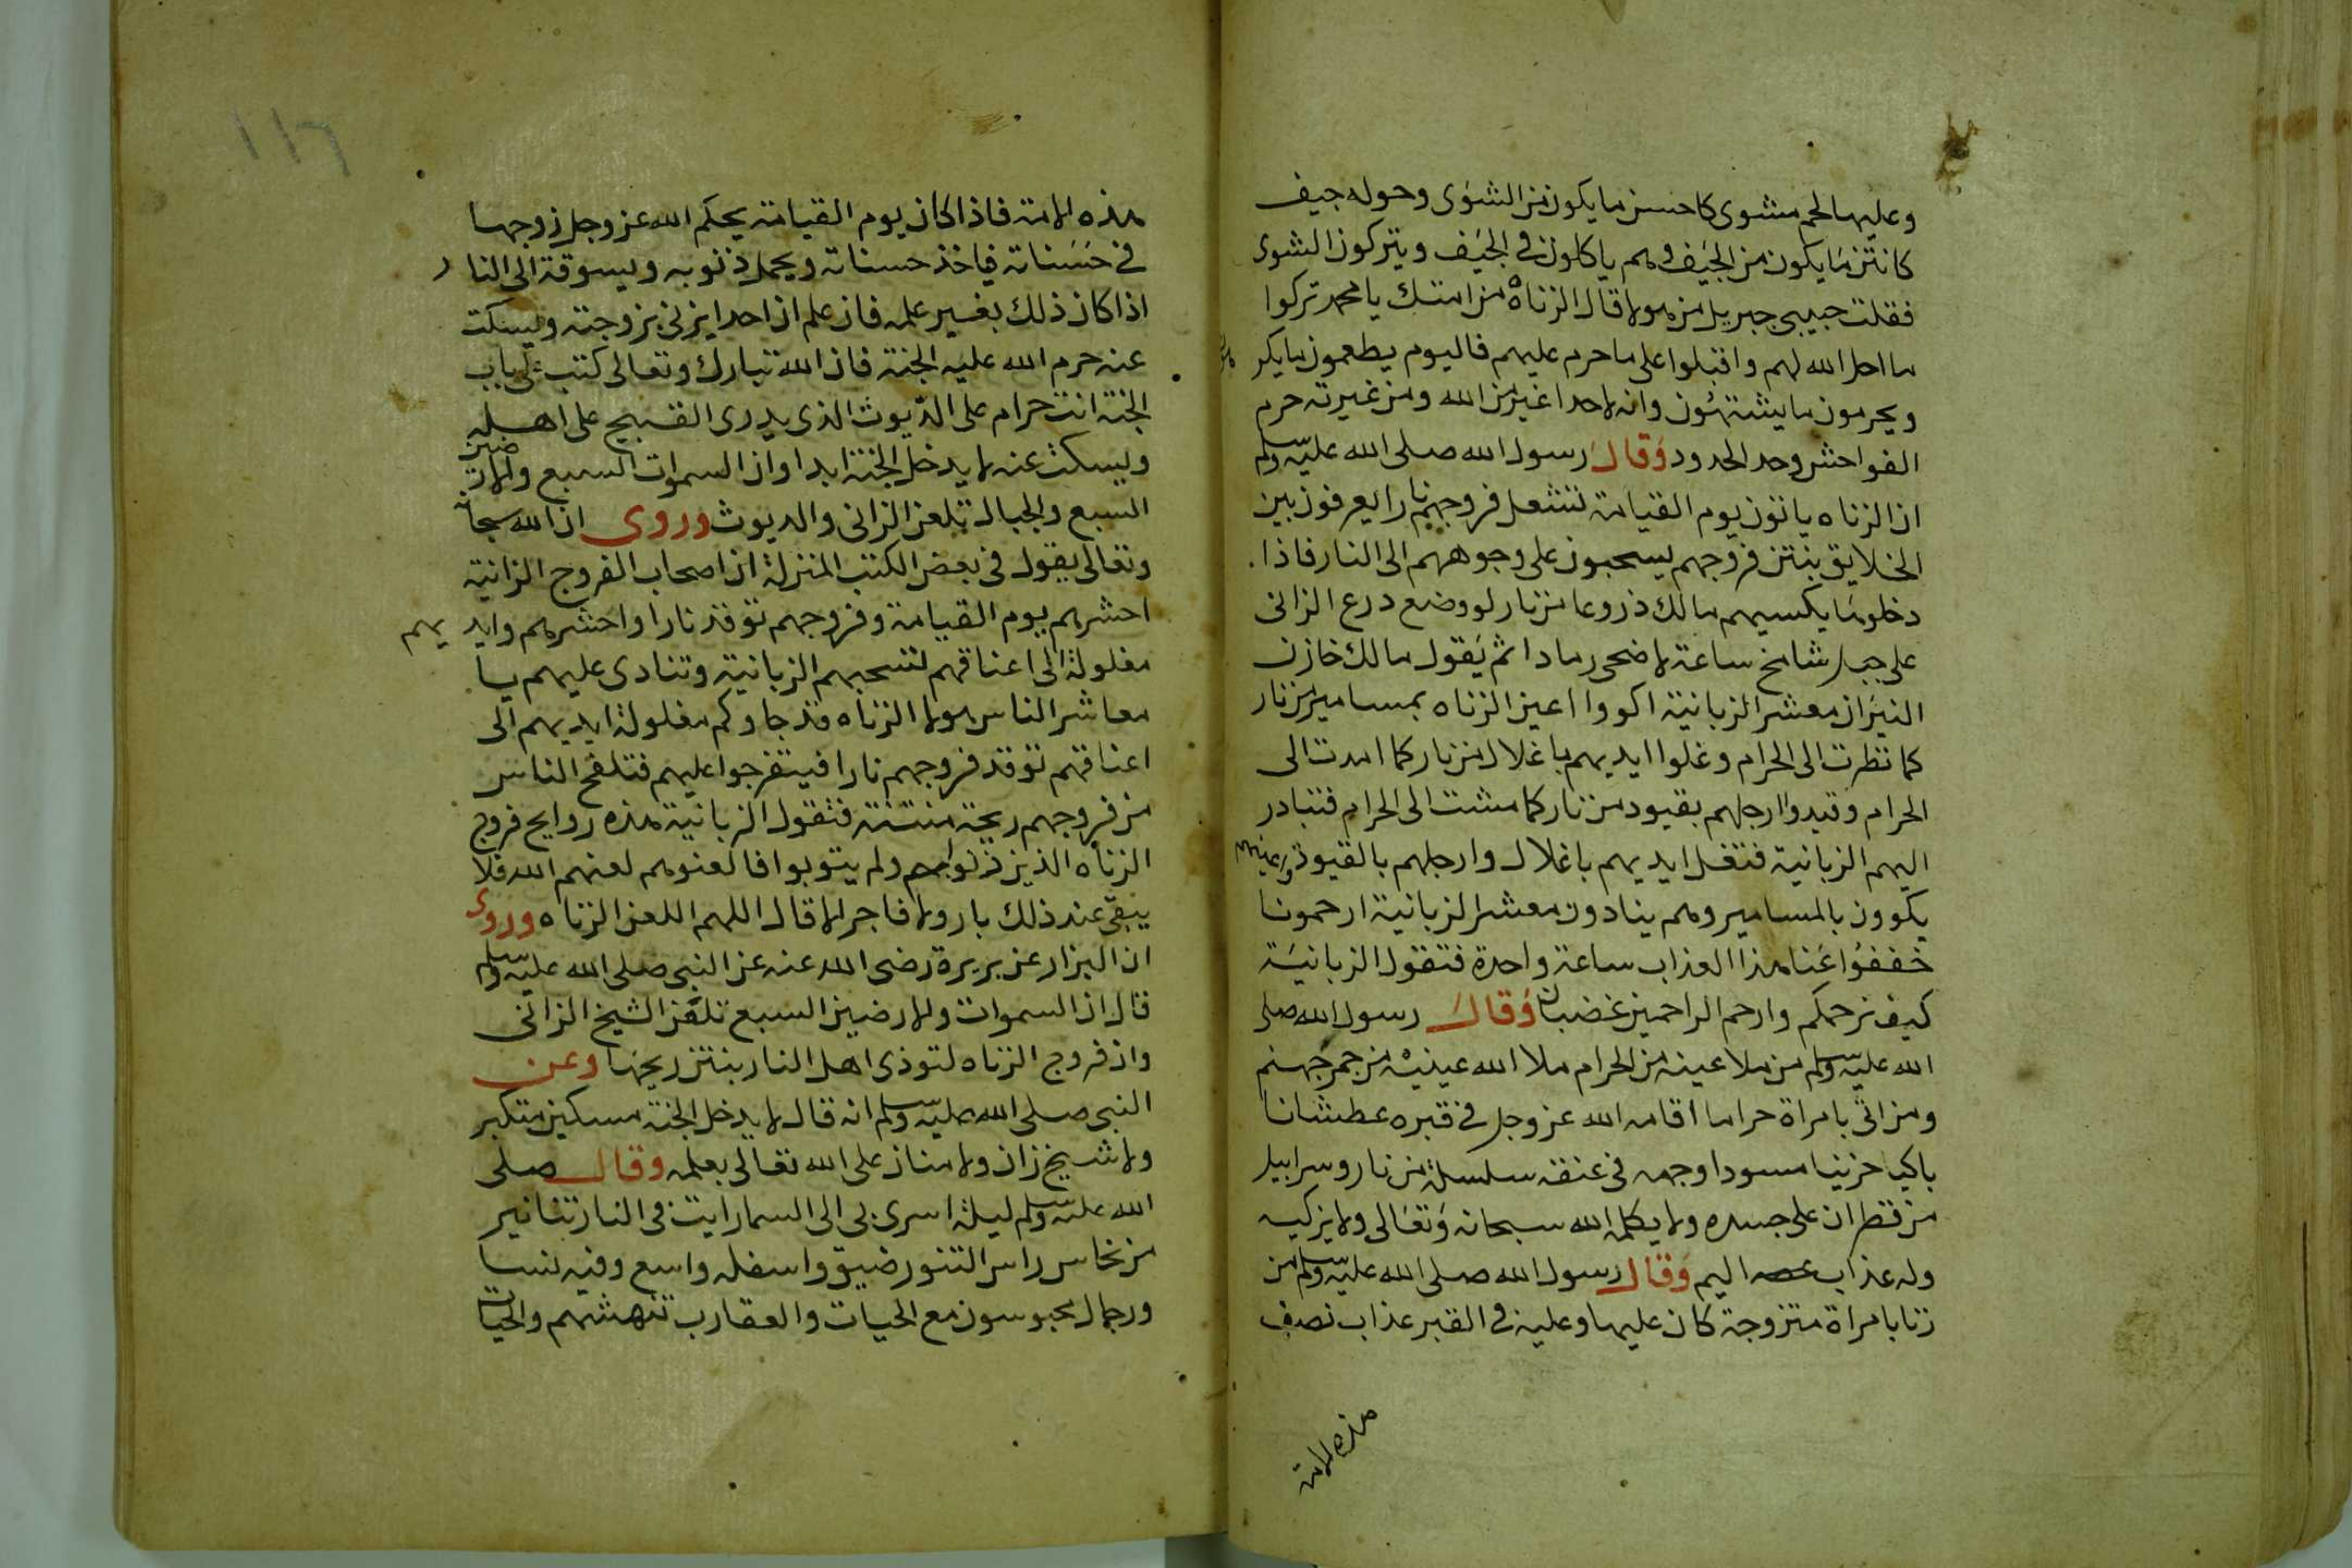 وعليها لحم مشوى كاحسن ما يكون من الشوى وحوله جيف
كانتن ما يكون من الجيف وهم ياكلون فى الجيف ويتركون الشوى
فقلت حبيبى جبريل من هولاء قال الزناه من امتك يا محمد تركوا
ما احل الله لهم واقبلوا على ما حرم عليهم فاليوم يطعمون ما يكر هون
ويحرمون ما يشتهون وانه لا احدا اغير من الله ومن غيرته حرم
الفواحش وحد الحدود وقال رسول الله صلى الله عليه وسلم
ان الزناه ياتون يوم القيامة تشعل فروجهم نارا يعرفون بين
الخلايق بنتن فروجهم يسحبون على وجوههم الى النار فاذا
دخلوها يكسيهم مالك ذروعا من نار لو وضع درع الزانى
على جبل شامخ ساعة لاضحى رمادا ثم يقول مالك خازن
النيران معشر الزبانية اكووا اعين الزناه بمسامير من نار
كما نظرت الى الحرام وغلوا ايديهم باغلال من نار كما امدت الى
الحرام وقيدوا ارجلهم بقيود من نار كما مشت الى الحرام فتبادر
اليهم الزبانية فتغل ايديهم باغلال وارجلهم بالقيود واعينهم
يكوون بالمسامير وهم ينادون معشر الزبانية ارحمونا
خففوا عنا هذا العذاب ساعة واحدة فتقول الزبانية
كيف نرحمكم وارحم الراحمين غضبان وقال رسول الله صلى
الله عليه وسلم من ملا عينه من الحرام ملا الله عينيه من جمر جهنم
ومن اتى بامراة حراما اقامه الله عز وجل فى قبره عطشانا
باكيا حزينا مسودا وجهه فى عنقه سلسلة من نار وسرابيل
من قطران على جسده ولا يكلمه الله سبحانه وتعالى ولا يزكيه
وله عذاب اليم وقال رسول الله صلى الله عليه وسلم من
زنا بامراة متزوجة كان عليها وعليه فى القبر عذاب نصف
هذه الامة
١١٦
هذه الامة فاذا كان يوم القيامة يحكم الله عز وجل زوجها
فى حسناته فياخذ حسناته ويحمل ذنوبه ويسوقة الى النار
اذا كان ذلك بغير علمه فان علم ان احدا يزنى بزوجته ويسكت
عنه حرم الله عليه الجنة فان الله تبارك وتعالى كتب على باب
الجنة انت حرام على الديوث الذى يدرى القبيح على اهله
ويسكت عنه لا يدخل الجنة ابدا وان السموات السبع والارضين
السبع والجبال تلعن الزانى والديوث وروى ان الله سبحانه
وتعالى يقول فى بعض الكتب المنزلة ان اصحاب الفروج الزانية
احشرهم يوم القيامة وفروجهم توقد نارا واحشرهم وايديهم
مغلولة الى اعناقهم تسحبهم الزبانية وتنادى عليهم يا
معاشر الناس هولاء الزناه قد جاوكم مغلولة ايديهم الى
اعناقهم توقد فروجهم نارا فيتفرجوا عليهم فتلفح الناس
من فروجهم ريحة منتنة فتقول الزبانية هذه روايح فروج
الزناه الذين زنوا ولم يتوبوا فالعنوهم لعنهم الله فلا
يبقى عند ذلك بار ولا فاجر الا قال اللهم العن الزناه وروى
ان البزار عن بريرة رضى الله عنه عن النبى صلى الله عليه وسلم
قال ان السموات والارضين السبع تلعن الشيخ الزانى
وان فروج الزناه لتوذى اهل النار بنتن ريحها وعن
النبى صلى الله عليه وسلم انه قال لا يدخل الجنة مسكين متكبر
ولا شيخ زان ولا منان على الله تعالى بعلمه وقال صلى
الله عليه وسلم ليلة اسرى بى الى السما رايت فى النار تنانير
من نحاس راس التنور ضيق واسفله واسع وفيه نسا
ورجال محبوسون مع الحيات والعقارب تنهشهم والحيات